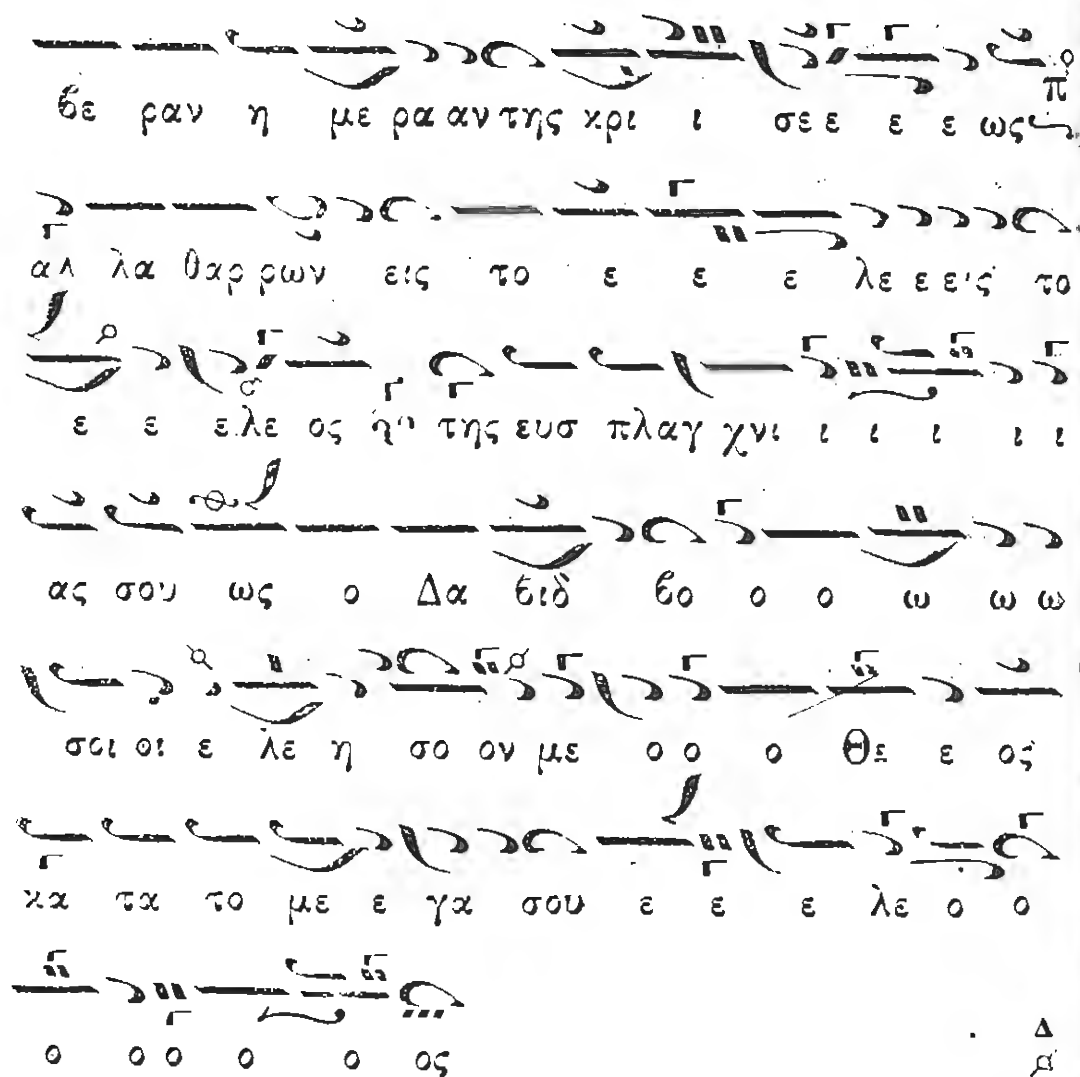 βε ραν η με ρα αν της κρι ι σε ε ε ε ως π
αλ λα θαρ ρων εις το ε ε ε λε ε εις το
ε ε ε λε ος της ευσ πλαγ χνι ι ι ι ι ι
ας σου ως ο Δα βιδ βο ο ο ω ω ω
σοι οι ε λε η σο ον με ο ο ο Θε ε ος
κα τα το με ε γα σου ε ε ε λε ο ο
ο ο ο ο ο ος Δ